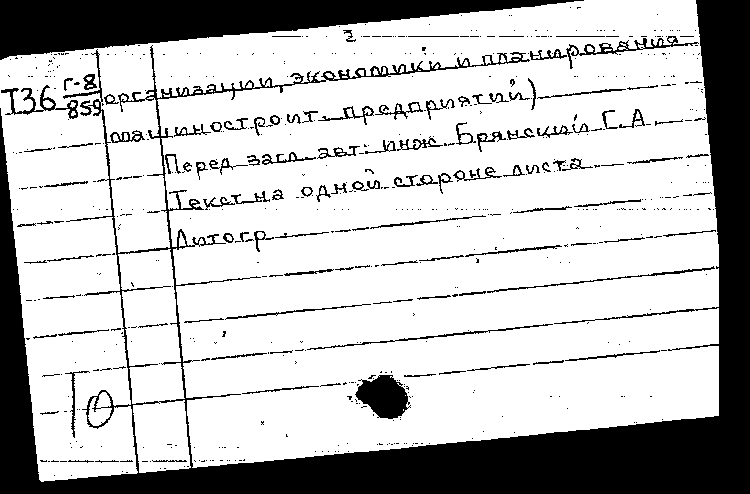 2
Т36 Г-8/859 организации, экономики и планирования
машиностроит. предприятий)
Перед загл. авт: инж. Брянский Г.А.
Текст на одной стороне листа
Литогр.
10